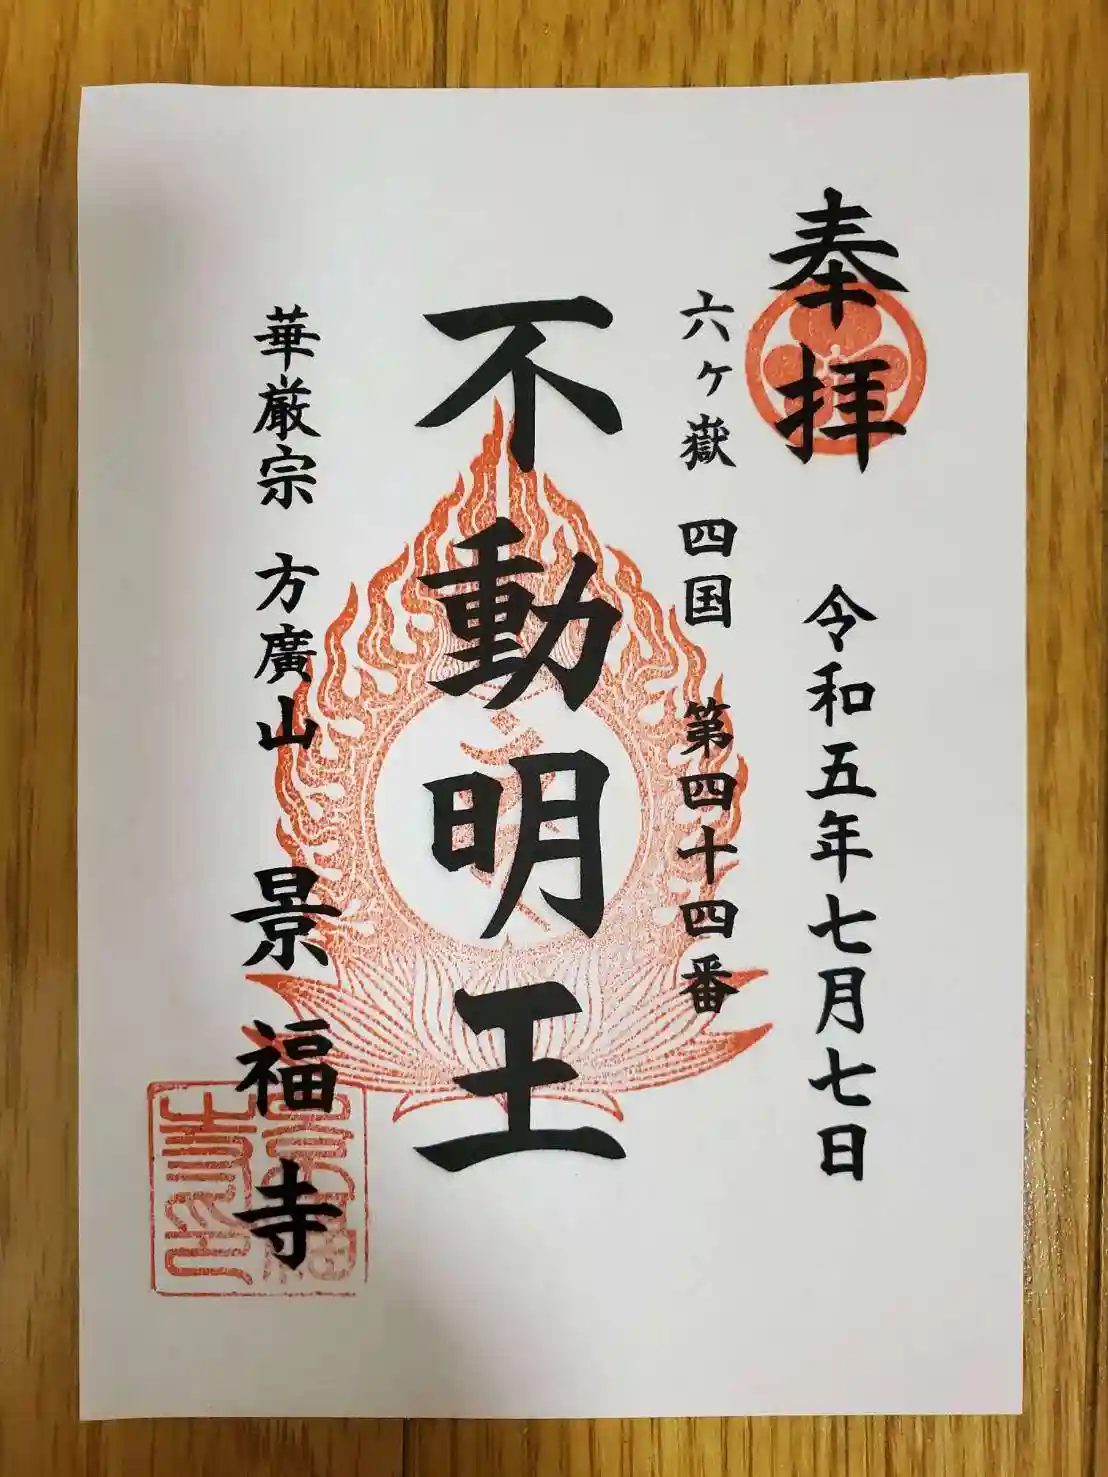 奉拝
令和五年七月七日
六ヶ嶽 四国 第四十四番
不動明王
華厳宗 方廣山 景福寺
景福
寺印